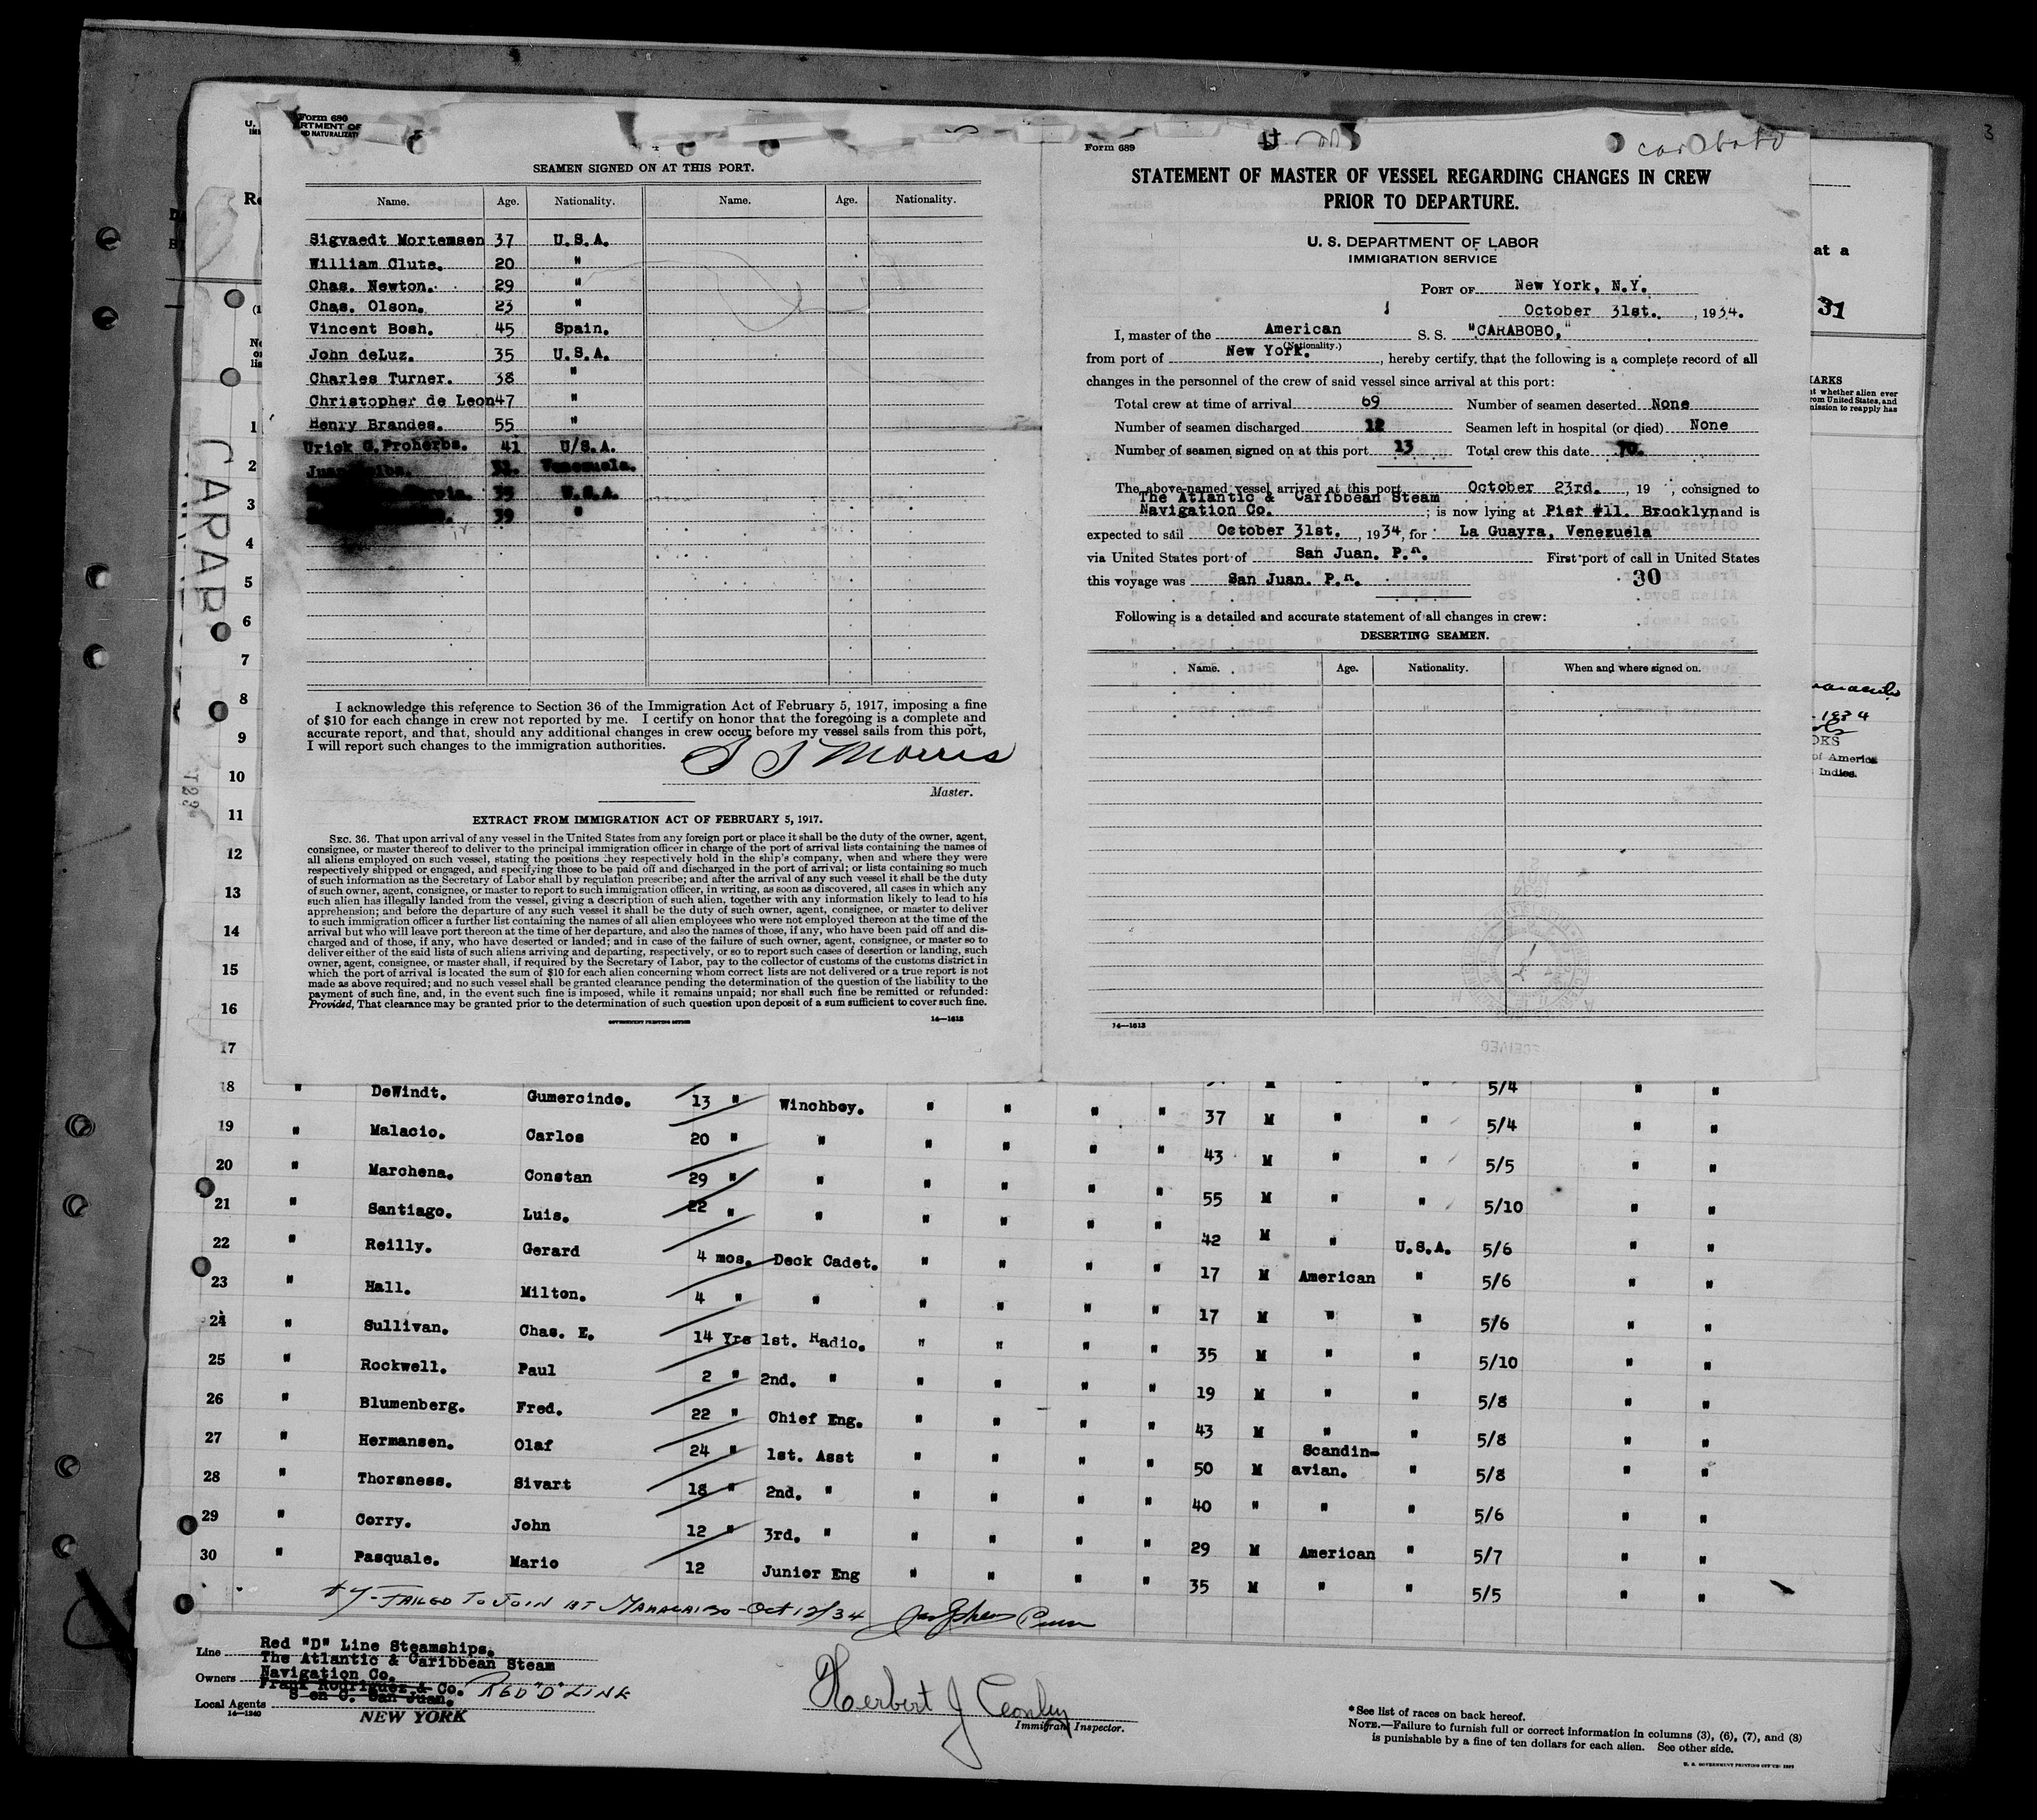 Form 680
RTMENT OF
ND NATURALIZATI
SEAMEN SIGNED ON AT THIS PORT.
Name. Age. Nationality. Name. Age. Nationality.
Sigvaedt Mortemsen 37 U.S.A.
William Clute. 20 "
Chas. Newton. 29 "
Chas. Olson. 23 "
Vincent Bosh. 45 Spain.
John deLuz. 35 U.S.A.
Charles Turner. 38 "
Christopher de Leon 47 "
Henry Brandes. 55 "
Urick G. Proherbs. 41 U/S.A.
Venezuela.
35 U.S.A.
39 "
I acknowledge this reference to Section 36 of the Immigration Act of February 5, 1917, imposing a fine
of $10 for each change in crew not reported by me. I certify on honor that the foregoing is a complete and
accurate report, and that, should any additional changes in crew occur before my vessel sails from this port,
I will report such changes to the immigration authorities.
S S Morris
Master.
EXTRACT FROM IMMIGRATION ACT OF FEBRUARY 5, 1917.
SEC. 36. That upon arrival of any vessel in the United States from any foreign port or place it shall be the duty of the owner, agent,
consignee, or master thereof to deliver to the principal immigration officer in charge of the port of arrival lists containing the names of
all aliens employed on such vessel, stating the positions they respectively hold in the ship's company, when and where they were
respectively shipped or engaged, and specifying those to be paid off and discharged in the port of arrival; or lists containing so much
of such information as the Secretary of Labor shall by regulation prescribe; and after the arrival of any such vessel it shall be the duty
of such owner, agent, consignee, or master to report to such immigration officer, in writing, as soon as discovered, all cases in which any
such alien has illegally landed from the vessel, giving a description of such alien, together with any information likely to lead to his
apprehension; and before the departure of any such vessel it shall be the duty of such owner, agent, consignee, or master to deliver
to such immigration officer a further list containing the names of all alien employees who were not employed thereon at the time of the
arrival but who will leave port thereon at the time of her departure, and also the names of those, if any, who have been paid off and dis-
charged and of those, if any, who have deserted or landed; and in case of the failure of such owner, agent, consignee, or master so to
deliver either of the said lists of such aliens arriving and departing, respectively, or so to report such cases of desertion or landing, such
owner, agent, consignee, or master shall, if required by the Secretary of Labor, pay to the collector of customs of the customs district in
which the port of arrival is located the sum of $10 for each alien concerning whom correct lists are not delivered or a true report is not
made as above required; and no such vessel shall be granted clearance pending the determination of the question of the liability to the
payment of such fine, and, in the event such fine is imposed, while it remains unpaid; nor shall such fine be remitted or refunded:
Provided, That clearance may be granted prior to the determination of such question upon deposit of a sum sufficient to cover such fine.
GOVERNMENT PRINTING OFFICE 14—1613
Form 689
carabobo
STATEMENT OF MASTER OF VESSEL REGARDING CHANGES IN CREW
PRIOR TO DEPARTURE.
U. S. DEPARTMENT OF LABOR
IMMIGRATION SERVICE
PORT OF New York, N.Y.
October 31st., 1934.
I, master of the American S. S. "CARABOBO,"
(Nationality.)
from port of New York., hereby certify that the following is a complete record of all
changes in the personnel of the crew of said vessel since arrival at this port:
Total crew at time of arrival 69 Number of seamen deserted None
Number of seamen discharged 12 Seamen left in hospital (or died) None
Number of seamen signed on at this port 13 Total crew this date 70.
The above-named vessel arrived at this port October 23rd., 19 , consigned to
The Atlantic & Caribbean Steam
Navigation Co.; is now lying at Pier #11. Brooklyn and is
expected to sail October 31st., 1934, for La Guayra, Venezuela
via United States port of San Juan. P.R. First port of call in United States
this voyage was San Juan. P.R. 30
Following is a detailed and accurate statement of all changes in crew:
DESERTING SEAMEN.
Name. Age. Nationality. When and where signed on.
14—1613
at a
31
CARABO
1
2
3
4
5
6
7
8
9
10
11
12
13
14
15
16
17
18 " DeWindt. Gumercinde. 13 " Winchboy. " " " " 37 M " " 5/4 " "
19 " Malacio. Carlos 20 " " " " " " 43 M " " 5/5 " "
20 " Marchena. Constan 29 " " " " " " 55 M " " 5/10 " "
21 " Santiago. Luis. 22 " " " " " " 42 M " U.S.A. 5/6 " "
22 " Reilly. Gerard 4 mos. Deck Cadet. " " " " 17 M American " 5/6 " "
23 " Hall. Milton. 4 " " " " " " 17 M " " 5/6 " "
24 " Sullivan. Chas. E. 14 Yrs 1st. Radio. " " " " 35 M " " 5/10 " "
25 " Rockwell. Paul 2 " 2nd. " " " " " 19 M " " 5/8 " "
26 " Blumenberg. Fred. 22 " Chief Eng. " " " " 43 M " " 5/8 " "
27 " Hermansen. Olaf 24 " 1st. Asst " " " " 50 M Scandin-avian. " 5/8 " "
28 " Thorsness. Sivart 18 " 2nd. " " " " " 40 " " " 5/6 " "
29 " Corry. John 12 " 3rd. " " " " " 29 M American " 5/7 " "
30 " Pasquale. Mario 12 Junior Eng " " " " 35 M " " 5/5 " "
FAILED TO JOIN AT MARACAIBO - Oct 12/34
Line Red "D" Line Steamships.
Owners The Atlantic & Caribbean Steam
Navigation Co.
Local Agents Frank Rodriguez & Co. RED "D" LINE
S en C. San Juan.
14—1240
NEW YORK
Herbert J Conley
Immigrant Inspector.
*See list of races on back hereof.
NOTE.—Failure to furnish full or correct information in columns (3), (6), (7), and (8)
is punishable by a fine of ten dollars for each alien. See other side.